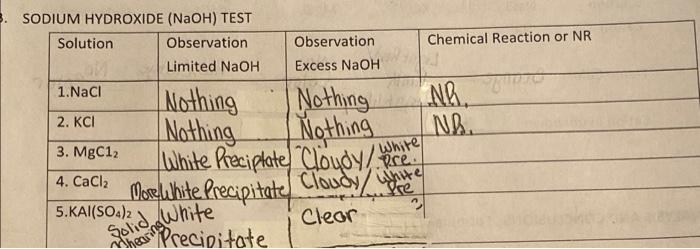 3. SODIUM HYDROXIDE (NaOH) TEST
Solution Observation Limited NaOH Observation Excess NaOH Chemical Reaction or NR
1.NaCl Nothing Nothing NR.
2. KCl Nothing Nothing NR.
3. MgC1₂ White Preciptate Cloudy/ White Pre.
4. CaCl₂ More White Precipitate Cloudy/ White Pre
5.KAl(SO₄)₂ Solid White Precipitate Clear ?